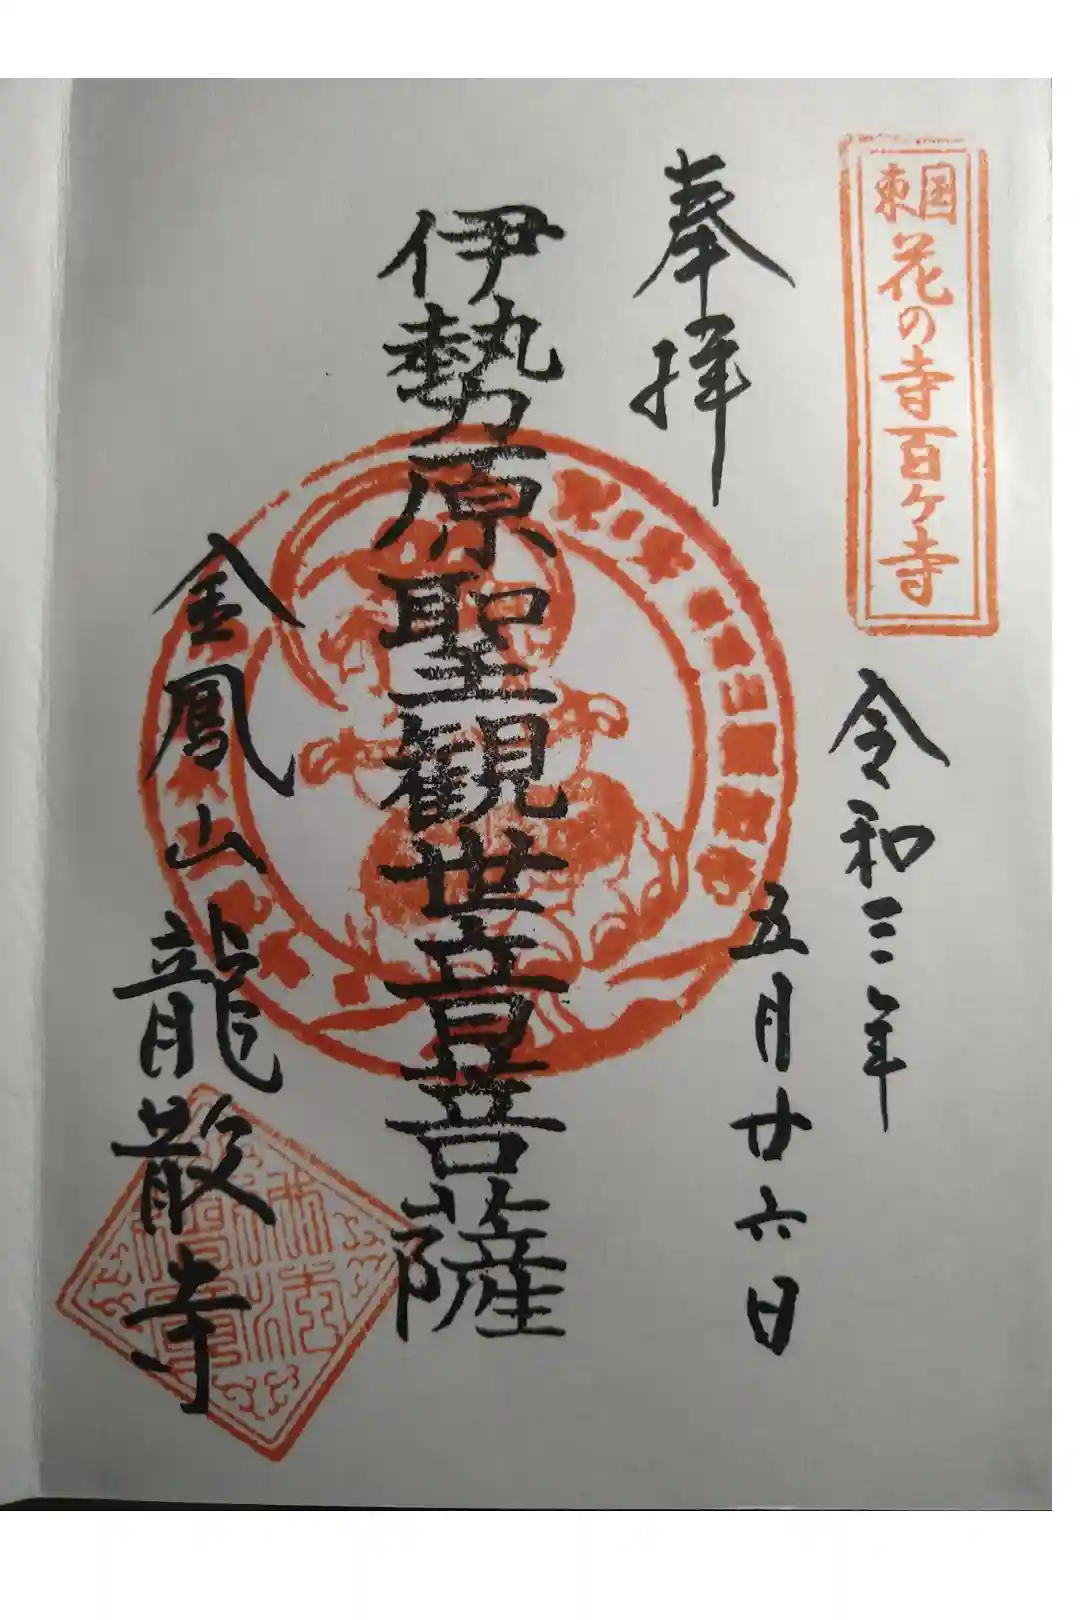 東国花の寺百ケ寺
奉拝
令和三年
五月廿六日
伊勢原聖観世音菩薩
金鳳山龍散寺